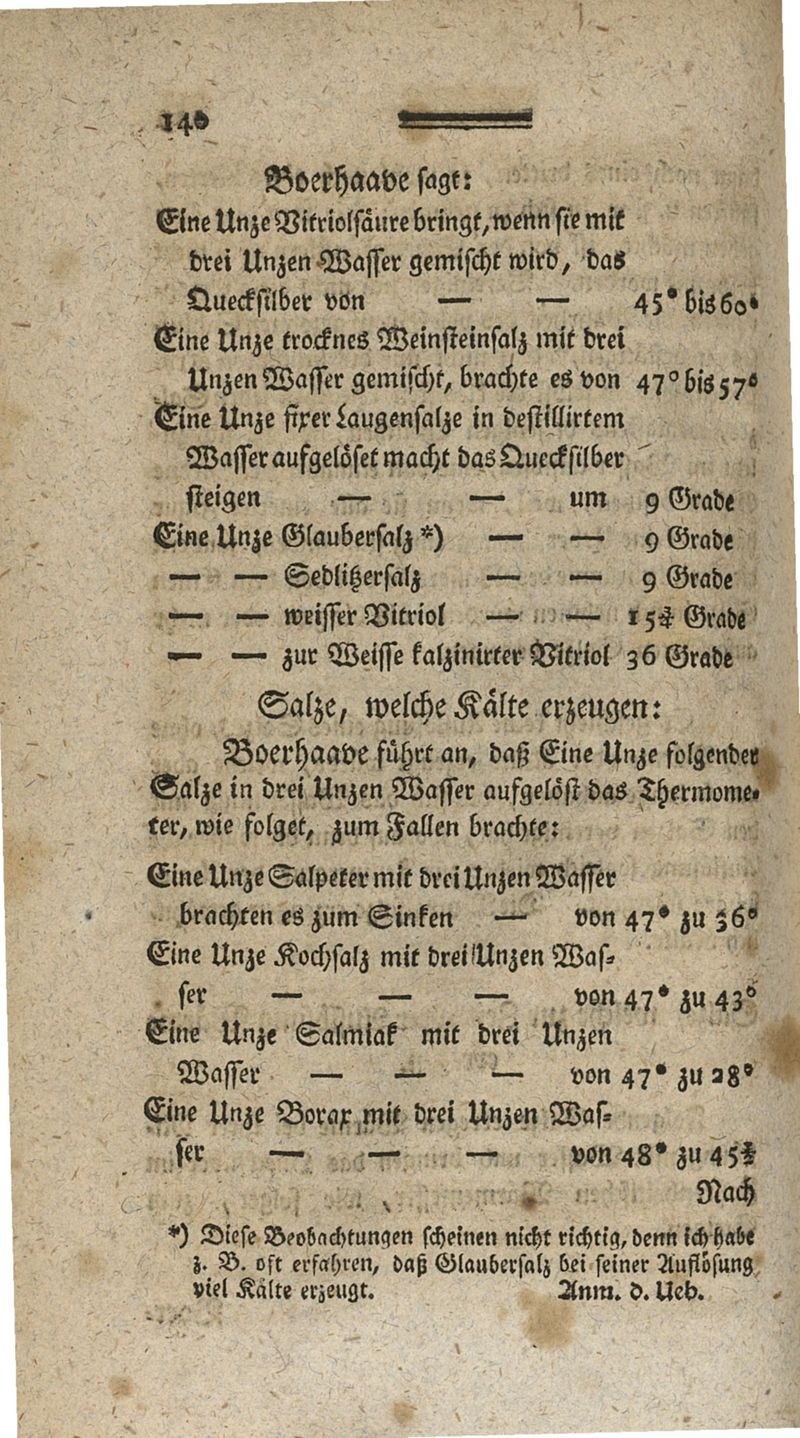 140
Boerhaave sagt:
Eine Unze Vitriolsäure bringt, wenn sie mit
drei Unzen Wasser gemischt wird, das
Quecksilber von — — 45° bis 60°
Eine Unze trocknes Weinsteinsalz mit drei
Unzen Wasser gemischt, brachte es von 47° bis 57°
Eine Unze fixer Laugensalze in destillirtem
Wasser aufgelöset macht das Quecksilber
steigen — — um 9 Grade
Eine Unze Glaubersalz *) — — 9 Grade
— — Sedlitzersalz — — 9 Grade
— — weisser Vitriol — — 15¾ Grade
— — zur Weisse kalzinirter Vitriol 36 Grade
Salze, welche Kälte erzeugen:
Boerhaave führt an, daß Eine Unze folgender
Salze in drei Unzen Wasser aufgelöst das Thermome-
ter, wie folget, zum Fallen brachte:
Eine Unze Salpeter mit drei Unzen Wasser
brachten es zum Sinken — von 47° zu 36°
Eine Unze Kochsalz mit drei Unzen Was-
ser — — — von 47° zu 43°
Eine Unze Salmiak mit drei Unzen
Wasser — — — von 47° zu 28°
Eine Unze Borax mit drei Unzen Was-
ser — — — von 48° zu 45¾
Nach
*) Diese Beobachtungen scheinen nicht richtig, denn ich habe
z. B. oft erfahren, daß Glaubersalz bei seiner Auflösung
viel Kälte erzeugt. Anm. d. Ueb.